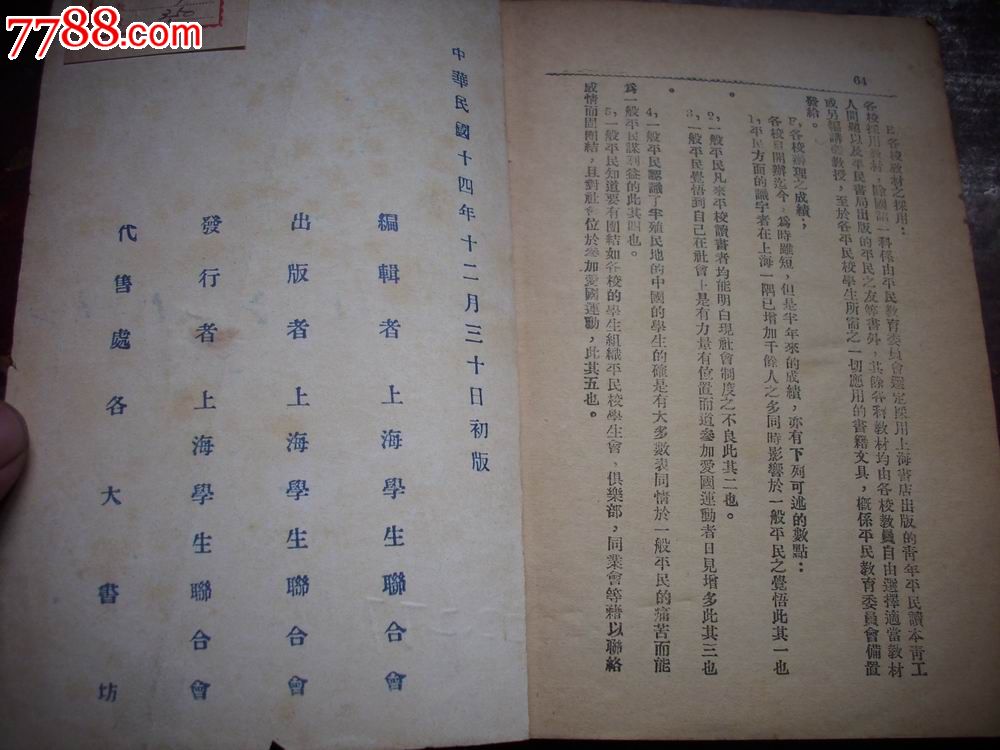 7788.com
350
64
E,各校教材之採用:
各校採用教材,除國語一科係由平民教育委員會選定採用上海書店出版的靑年平民讀本靑工
人問題以及平民書局出版的平民之友等書外,其餘各科教材均由各校教員自由選擇適當教材
或另編講義教授,至於各平民校學生所需之一切應用的書籍文具,槪係平民教育委員會備置
發給。
F,各校辦理之成績;
各校自開辦迄今,爲時雖短,但是半年來的成績,亦有下列可述的數點:
1,平民方面的識字者在上海一隅已增加千餘人之多同時影響於一般平民之覺悟此其一也
。
2,一般平民凡來平校讀書者均能明白現社會制度之不良此其二也。
3,一般平民覺悟到自己在社會上是有力量有位置而道參加愛國運動者日見增多此其三也
。
4,一般平民認識了半殖民地的中國的學生的確是有大多數表同情於一般平民的痛苦而能
爲一般平民謀利益的此其四也。
5,一般平民知道要有團結如各校的學生組織平民校學生會,俱樂部,同業會等藉以聯絡
感情而固團結,且對社會位於參加愛國運動,此其五也。
中華民國十四年十二月三十日初版
編輯者上海學生聯合會
出版者上海學生聯合會
發行者上海學生聯合會
代售處各大書坊